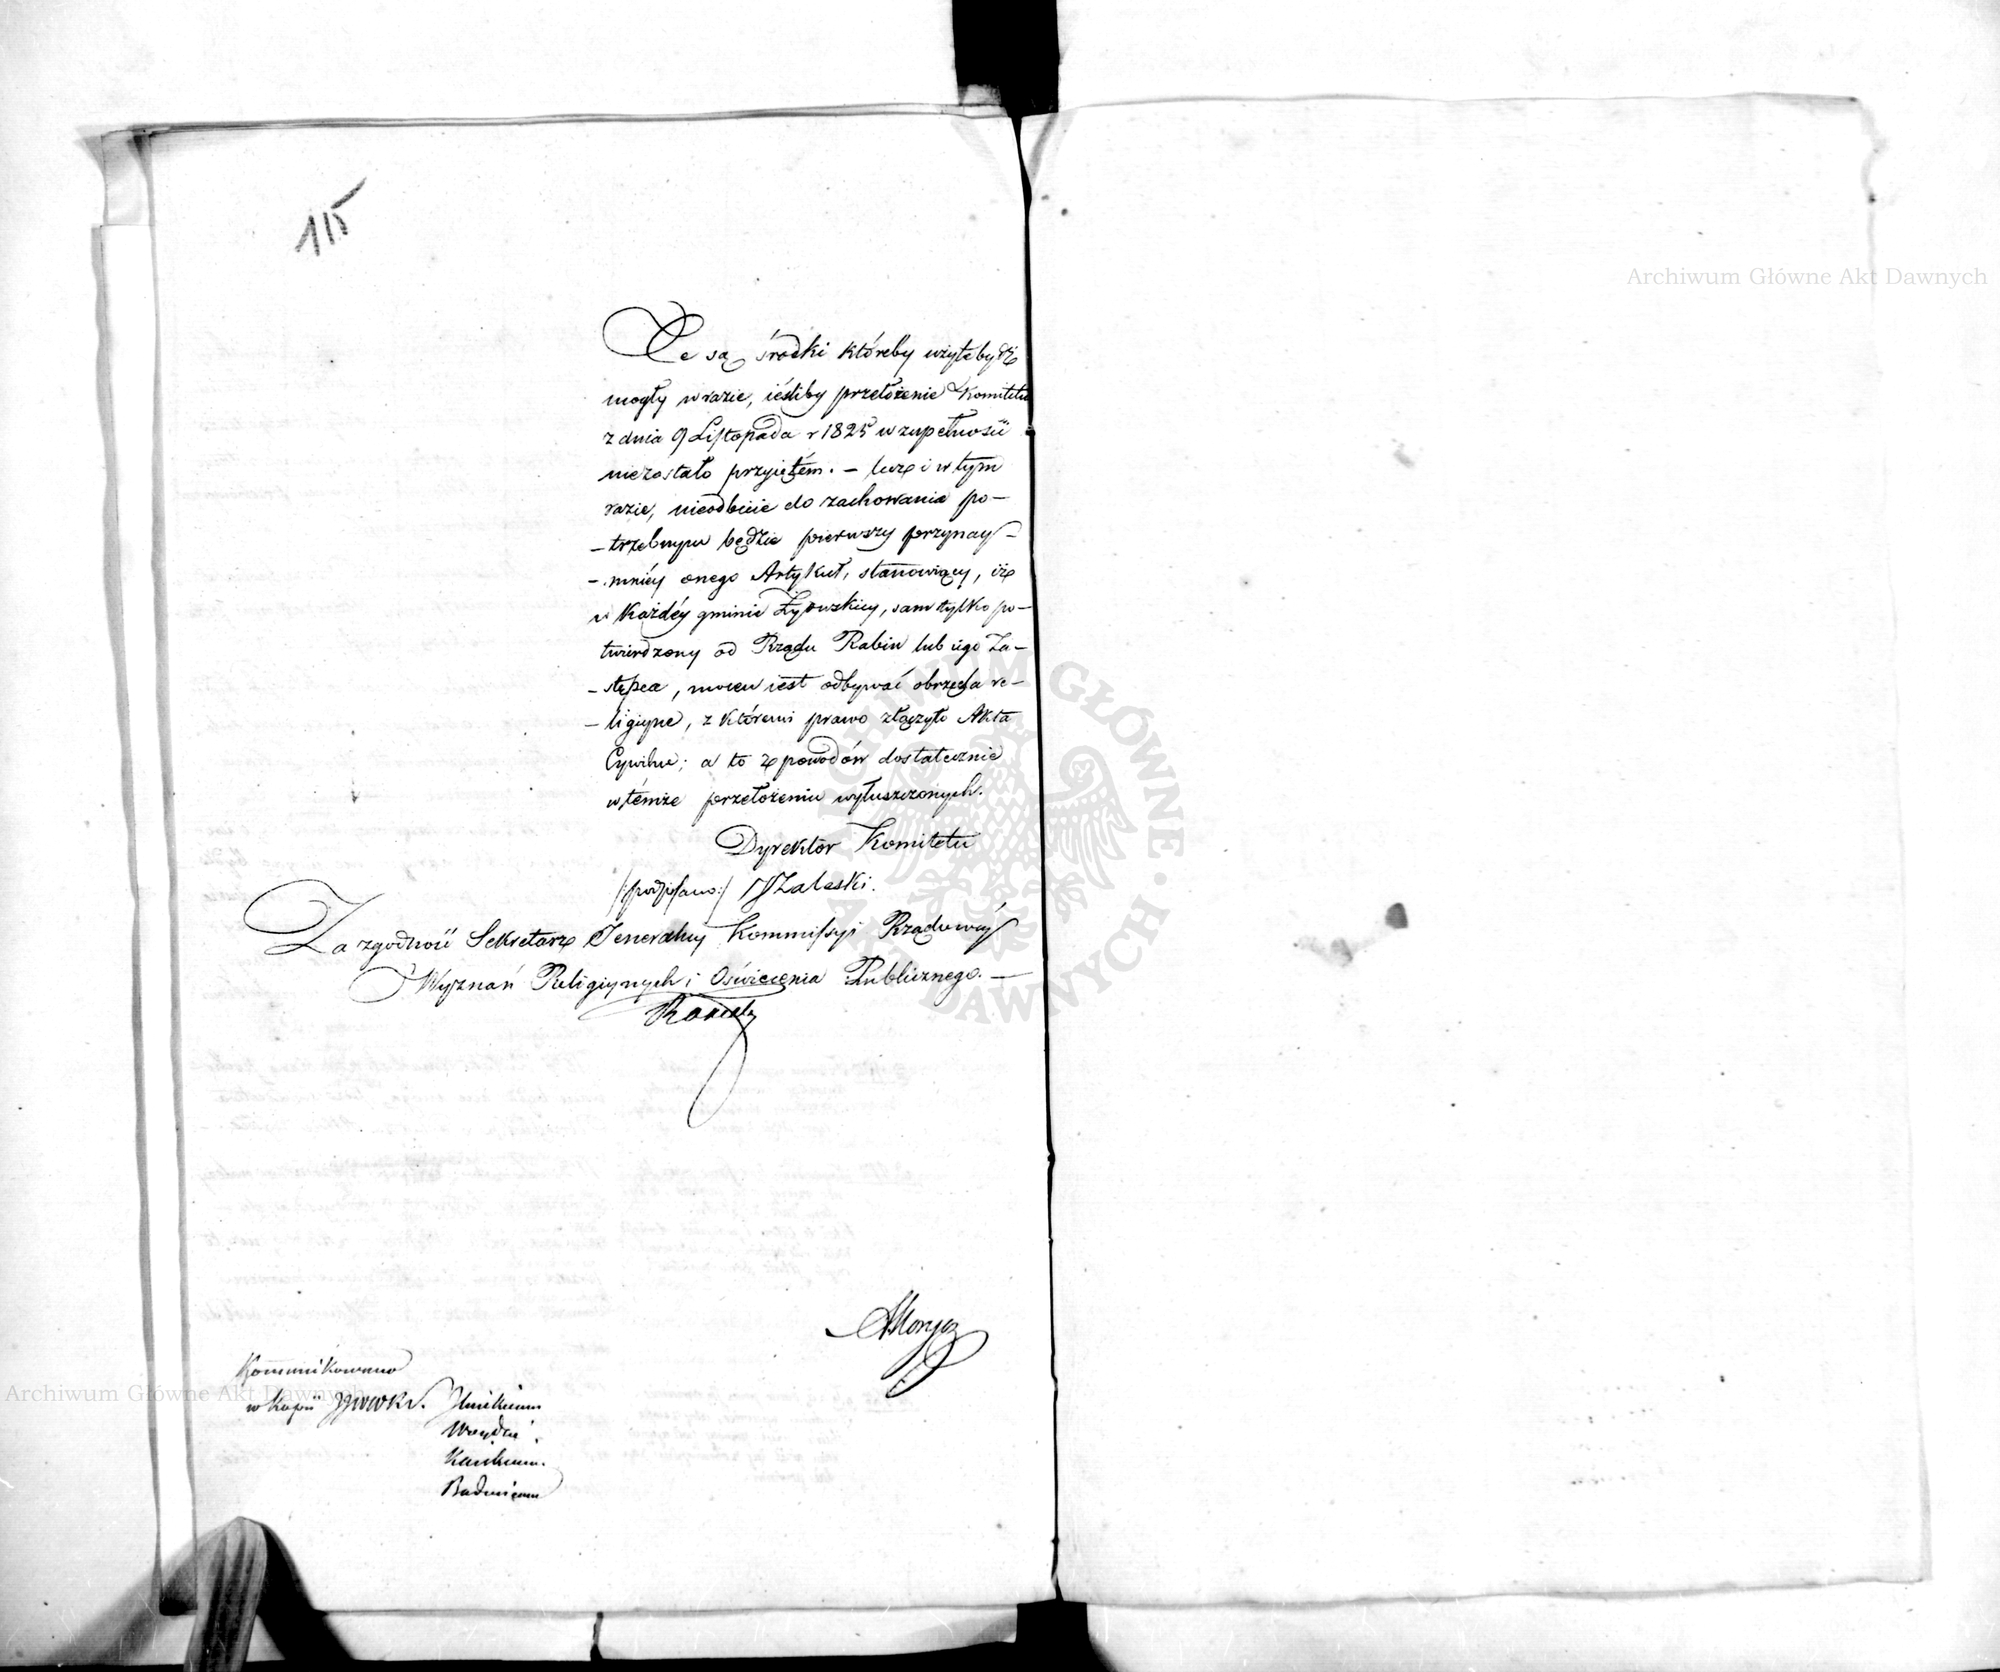 115
Te są środki któreby użyte bydź
mogły w razie, ieśliby przełożenie Komitetu
z dnia 9 Listopada r 1825 w zupełności
niezostało przyiętém. – lecz i w tym
razie, nieodbicie do zachowania po-
-trzebnym będzie pierwszy przynay-
-mniéy onego Artykuł, stanowiący, iż
w każdéy gminie Żydowskiey, sam tylko po-
twierdzony od Rządu Rabin lub iego Za-
-stępca, mocen iest odbywać obrzęda re-
-ligiyne, z któremi prawo złączyło Akta
Cywilne; a to z powodów dostatecznie
w témże przełożeniu wyłuszczonych.
Dyrektor Komitetu
/:podpisano:/ Zaleski.
Za zgodność Sekretarz Jeneralny Kommissyi Rządowéy
Wyznań Religiynych i Oświecenia Publicznego. –
Kommunikowano
w kopii JJWWK.
Archiwum Główne Akt Dawnych
Archiwum Główne Akt Dawnych
ARCHIWUM GŁÓWNE AKT DAWNYCH